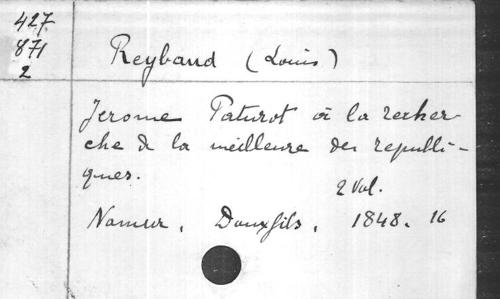 427
871
2
Reybaud (Louis)
Jerome Paturot à la recher-
che de la meilleure des republi-
ques.
2 Vol.
Namur, Douxfils, 1848. 16